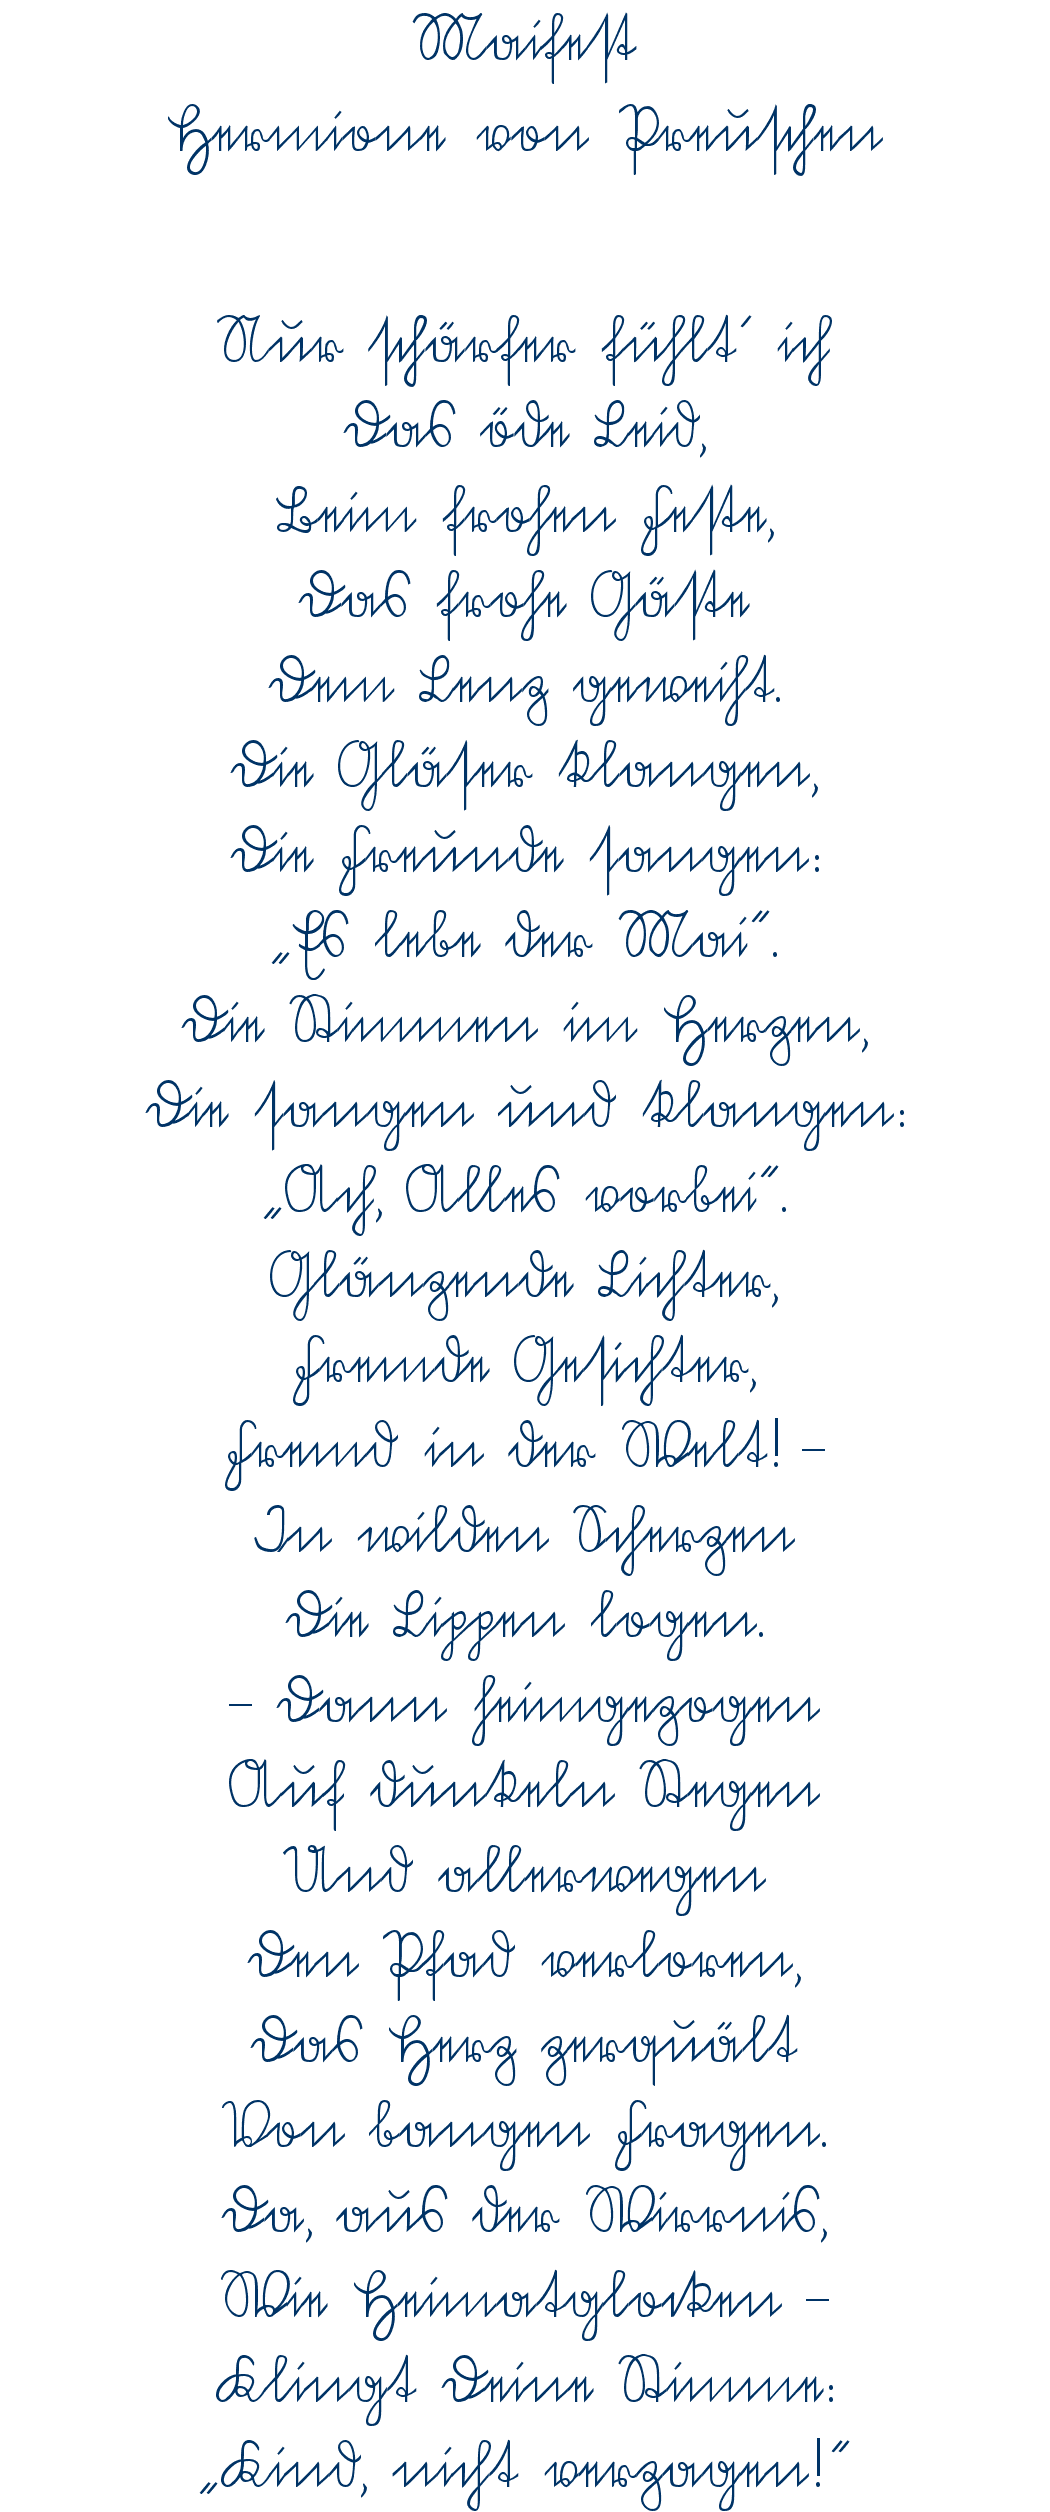 Maifest
Hermione von Preuschen
Nur schärfer fühlt´ ich
Das öde Leid,
Beim frohen Feste,
Das frohe Gäste
Dem Lenz geweiht.
Die Gläser klangen,
Die Freunde sangen:
„Es lebe der Mai“.
Die Stimmen im Herzen,
Die sangen und klangen:
„Ach, Alles vorbei“.
Glänzende Lichter,
Fremde Gesichter,
Fremd in der Welt! –
In wilden Scherzen
Die Lippen logen.
– Dann heimgezogen
Auf dunkeln Stegen
Und allerwegen
Den Pfad verloren,
Das Herz zerquält
Von bangen Fragen.
Da, aus der Wirrnis,
Wie Heimatglocken –
Klingt Deine Stimme:
„Kind, nicht verzagen!“